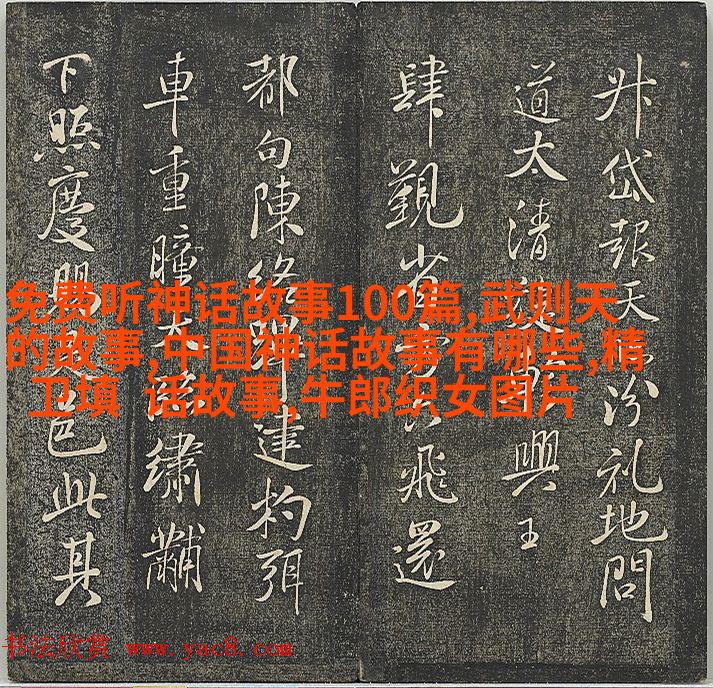 升岱報天汾礼地問
道太清興王
肆覲省飛還
都句陳絡建杓弭
車重瞳繡黼
下照慶賜邑此其
免费听神话故事100篇,武则天
的故事,中国神话故事有哪些,精
卫填 话故事,牛郎织女图片
书法欣赏 www.yac8.com